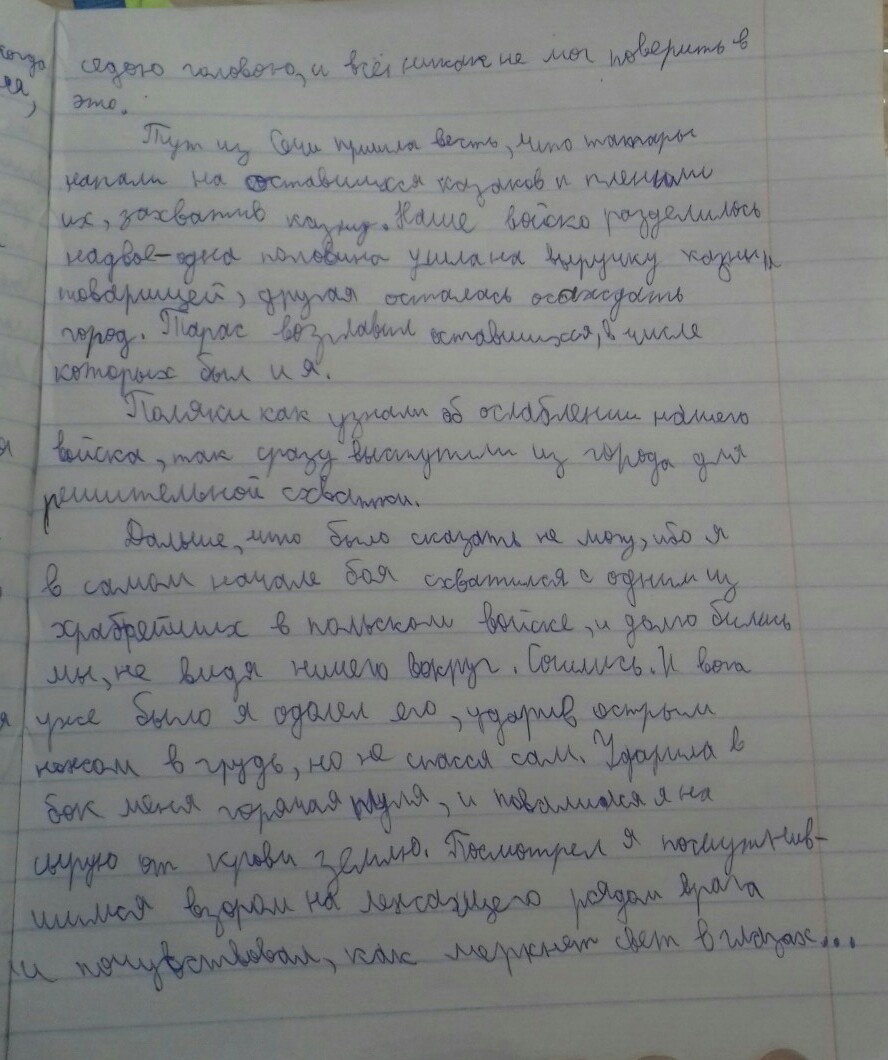 когда
седою головою, и всё никак не мог поверить в
это.
Тут из Сечи пришла весть, что татары
напали на оставшихся казаков и пленили
их, захватив казну. Наше войско разделилось
надвое – одна половина ушла на выручку казны и
товарищей, другая осталась осаждать
город. Тарас возглавил оставшихся, в числе
которых был и я.
Поляки как узнали об ослаблении нашего
войска, так сразу выступили из города для
решительной схватки.
Дальше, что было сказать не могу, ибо я
в самом начале боя схватился с одним из
храбрейших в польском войске, и долго бились
мы, не видя ничего вокруг. Сошлись. И вот
уже было я одолел его, ударив острым
ножом в грудь, но не спасся сам. Ударила в
бок меня горячая пуля, и повалился я на
сырую от крови землю. Посмотрел я помутнив-
шимся взором на лежащего рядом врага
и почувствовал, как меркнет свет в глазах...